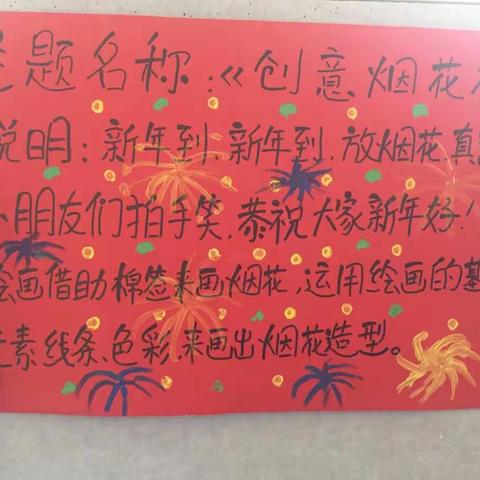 题名称:《创意烟花
说明:新年到,新年到,放烟花,真
小朋友们拍手笑,恭祝大家新年好!
绘画借助棉签来画烟花,运用绘画的基
元素线条、色彩,来画出烟花造型。